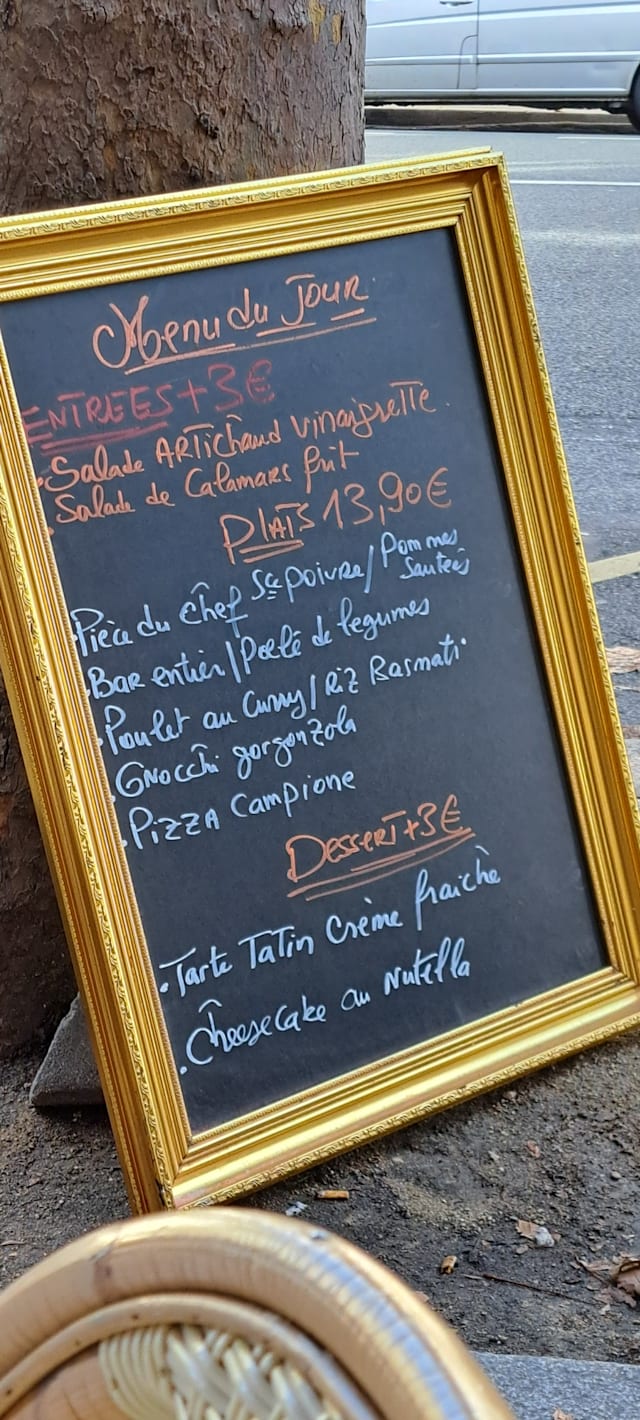 Menu du Jour
ENTREES + 3€
. Salade ARTichaud vinaigrette.
. Salade de Calamars frit
PlATS 13,90€
. Pièce du chef Sce poivre / Pommes sautées
. Bar entier / Poêlé de legumes
. Poulet au Curry / Riz Basmati
. Gnocchi gorgonzola
. PIZZA Campione
DesserT + 3€
. Tarte TaTin Crème fraichè
. Cheesecake au Nutella